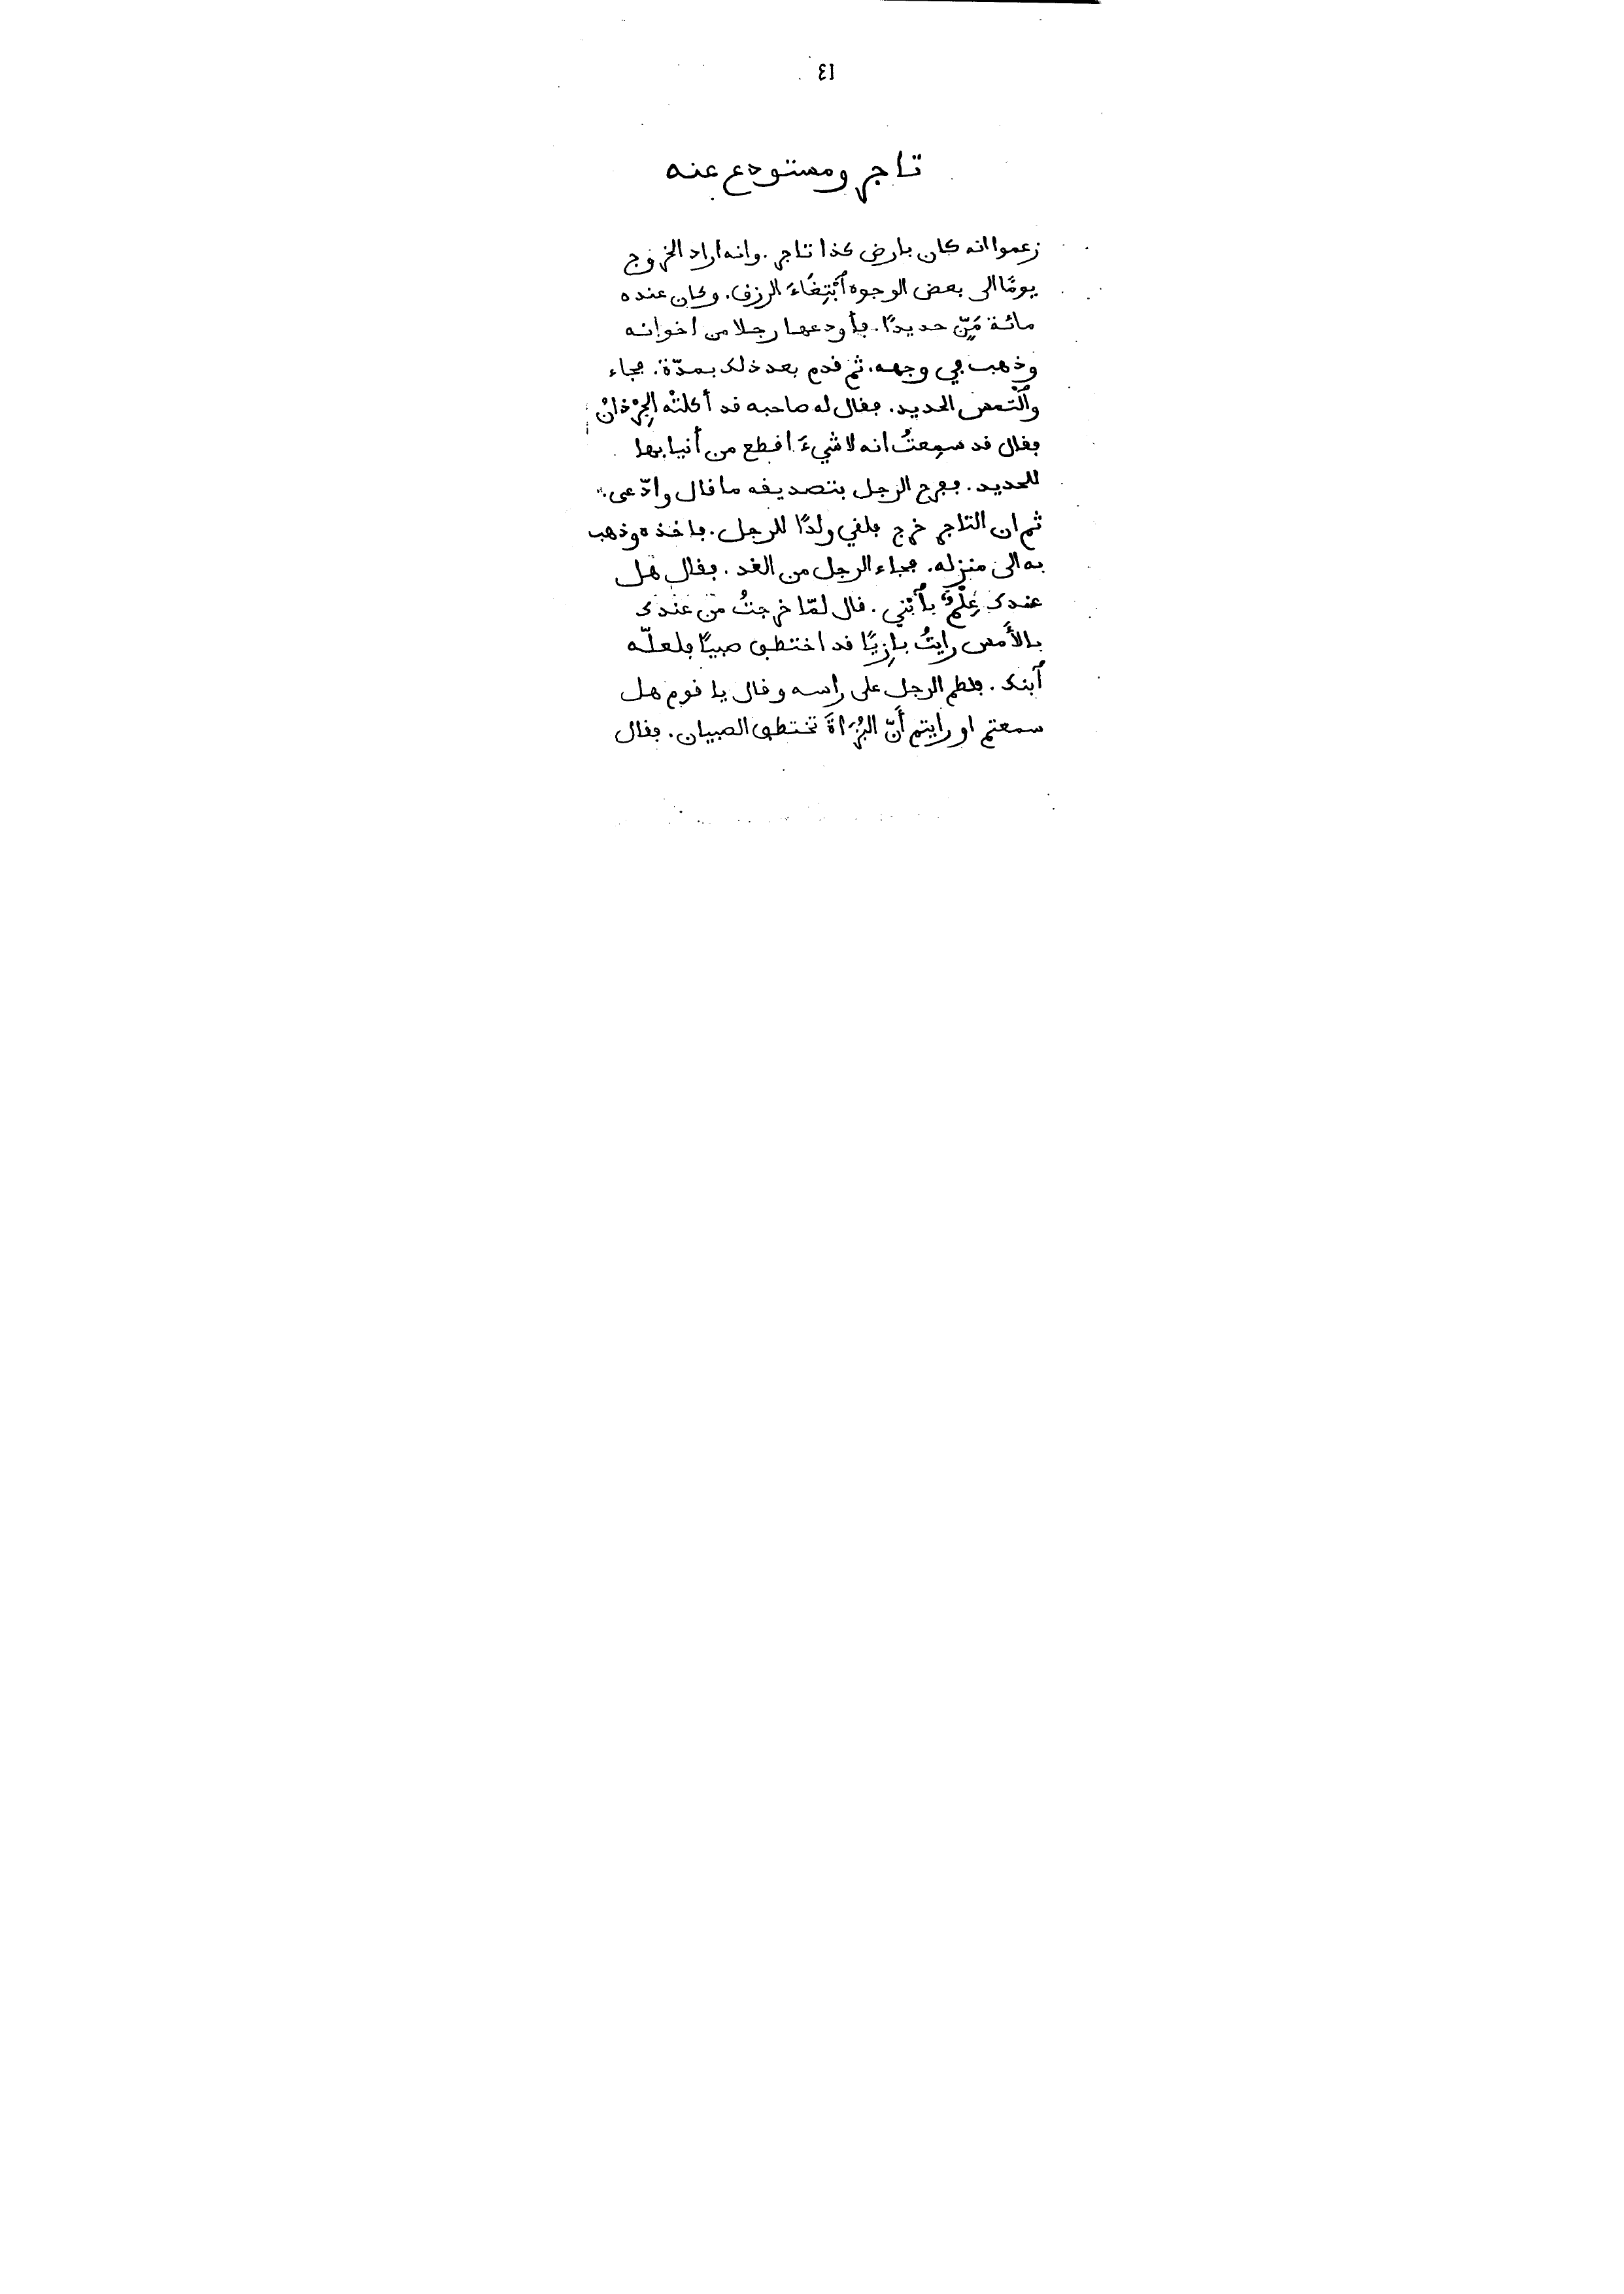 ٤١
تاجر ومستودع عنه
زعموا انه كان بارض كذا تاجر. وانه اراد الخروج
يومًا الى بعض الوجوه ٱبْتِغَاءَ الرزق. وكان عنده
مائة مَنٍّ حديدًا. فأودعها رجلا من اخوانه
وذهب في وجهه. ثم قدم بعد ذلك بمدّة. فجاء
وٱلْتمس الحديد. فقال له صاحبه قد أكلتْه الجِرْذانُ
فقال قد سمعتُ انه لا شيءَ اقطع من أنيابها
للحديد. ففرح الرجل بتصديقه ما قال وادّعى.
ثم ان التاجر خرج فلقي ولدًا للرجل. فاخذه وذهب
به الى منزله. فجاء الرجل من الغد. فقال هل
عندك عِلْمٌ بٱبْني. قال لمّا خرجتُ من عندك
بالأمس رايتُ بازِيًا قد اختطف صبيًا فلعلّه
ٱبنك. فلطم الرجل على راسه وقال يا قوم هل
سمعتم او رايتم أَنّ البُزَاةَ تختطف الصبيان. فقال